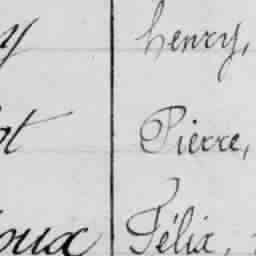 y henry,
ot Pierre,
oux Félix,